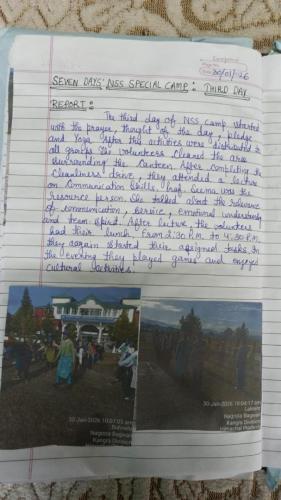 Date 30/01/26
SEVEN DAYS' NSS SPECIAL CAMP : THIRD DAY
REPORT :
The third day of NSS camp started
with the prayer, thought of the day, pledge
and Yoga. After this activities were distributed to
all groups. The volunteers cleaned the area
surrounding the Canteen. After completing the
Cleanliness drive, they attended a lecture
on Communication Skills. Prof. Seema was the
resource person. She talked about the relevance
of communication, service, emotional understanding
and team spirit. After lecture, the volunteers
had their lunch. From 2:30 P.M. to 4:30 P.M.
they again started their assigned tasks. In
the evening they played games and enjoyed
cultural activities.
30-Jan-2026 10:07:03 am
Nagrota Bagwan
Kangra Division
Himachal Pradesh
30-Jan-2026 10:04:17 am
Nagrota Bagwan
Kangra Division
Himachal Pradesh